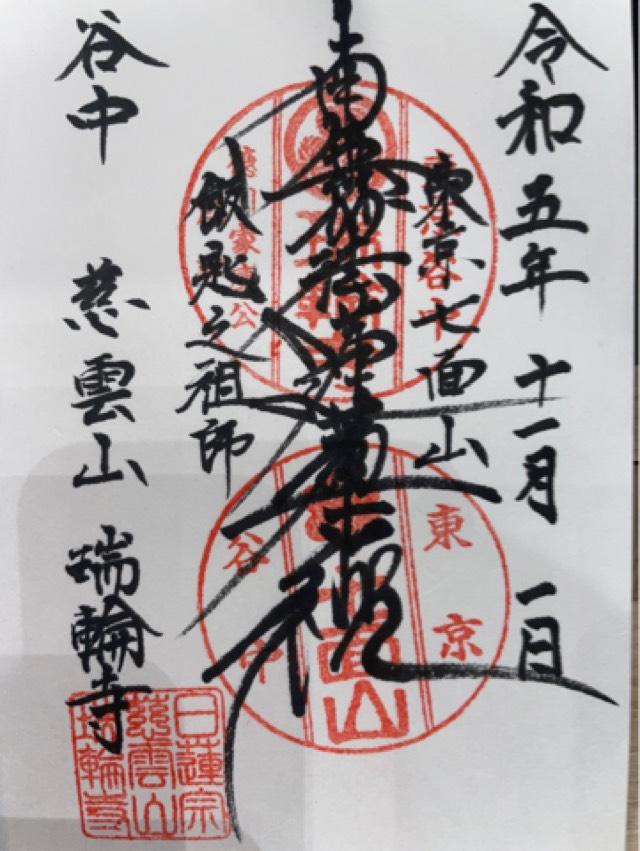 令和五年 十一月 一日
東京七面山
南無妙法蓮華経
飯匙之祖師
谷中 慈雲山 瑞輪寺
東京
七面山
谷中
日蓮宗
慈雲山
瑞輪寺